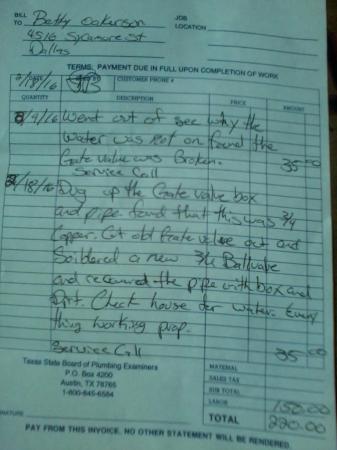 BILL TO Betty Oakerson JOB LOCATION
4516 Sycamore st
Dallas
TERMS: PAYMENT DUE IN FULL UPON COMPLETION OF WORK
DATE CUSTOMER PHONE #
2/18/16
QUANTITY DESCRIPTION PRICE AMOUNT
2/9/16 Went out of see why the
water was not on found the
Gate valve was Broken. 35.00
Service Call
2/18/16 Dug up the Gate valve box
and pipe found that this was 3/4
Copper. Cut old Gate valve out and
Soildered a new 3/4 Ballvalve
and recovered the pipe with box and
Dirt. Check house for water. Every
thing working prop.
Service Call 35.00
Texas State Board of Plumbing Examiners
P.O. Box 4200
Austin, TX 78765
1-800-845-6584
MATERIAL
SALES TAX
SUB TOTAL
LABOR 150.00
TOTAL 220.00
NATURE
PAY FROM THIS INVOICE. NO OTHER STATEMENT WILL BE RENDERED.